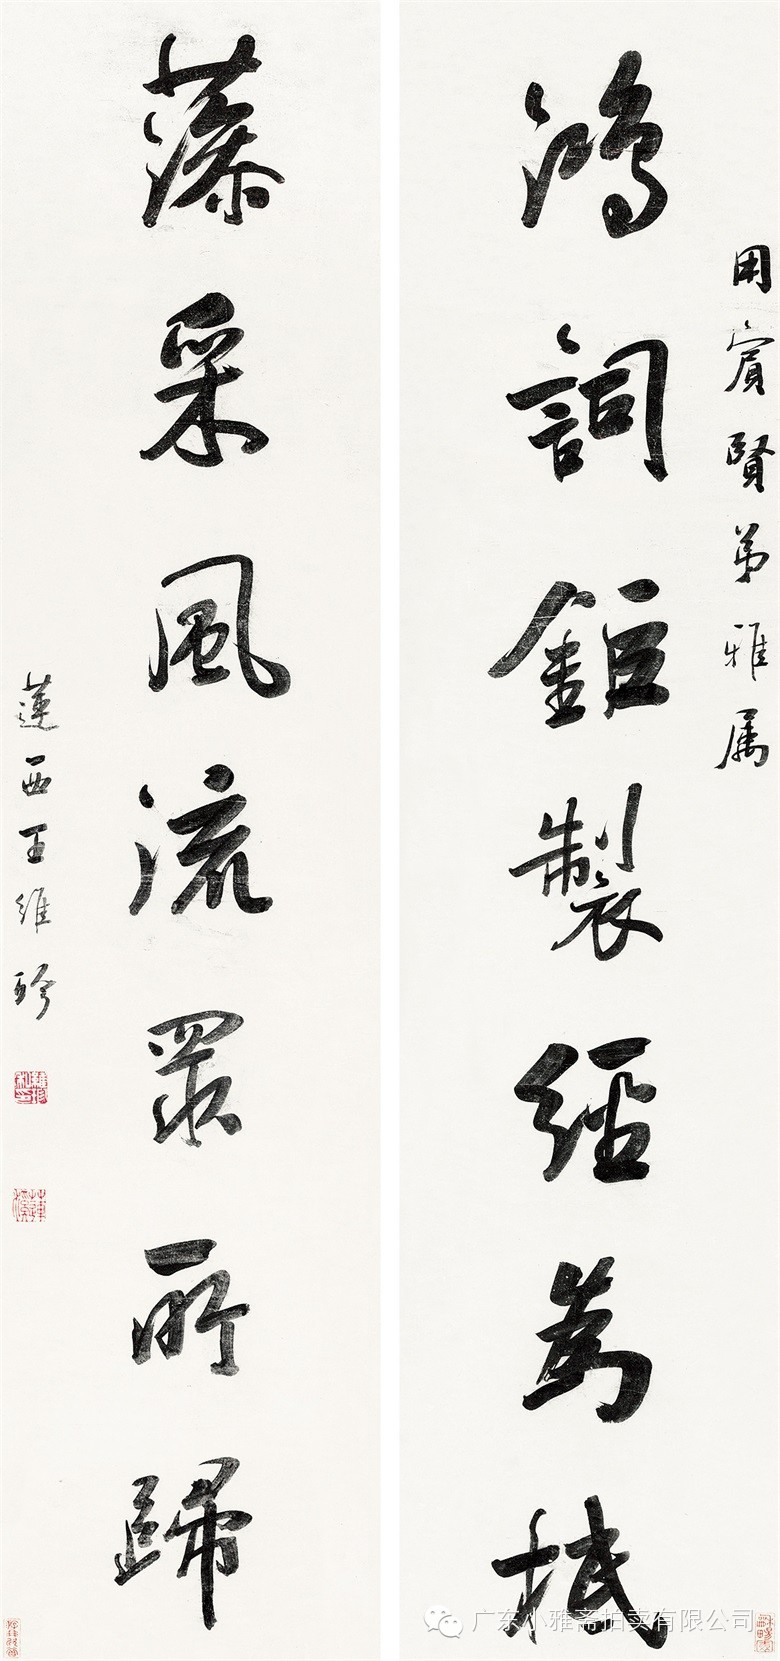 用賓賢弟雅属
鴻詞鉅製經為栻
藻采風流眾所歸
蓮西王維珍
广东小雅斋拍卖有限公司